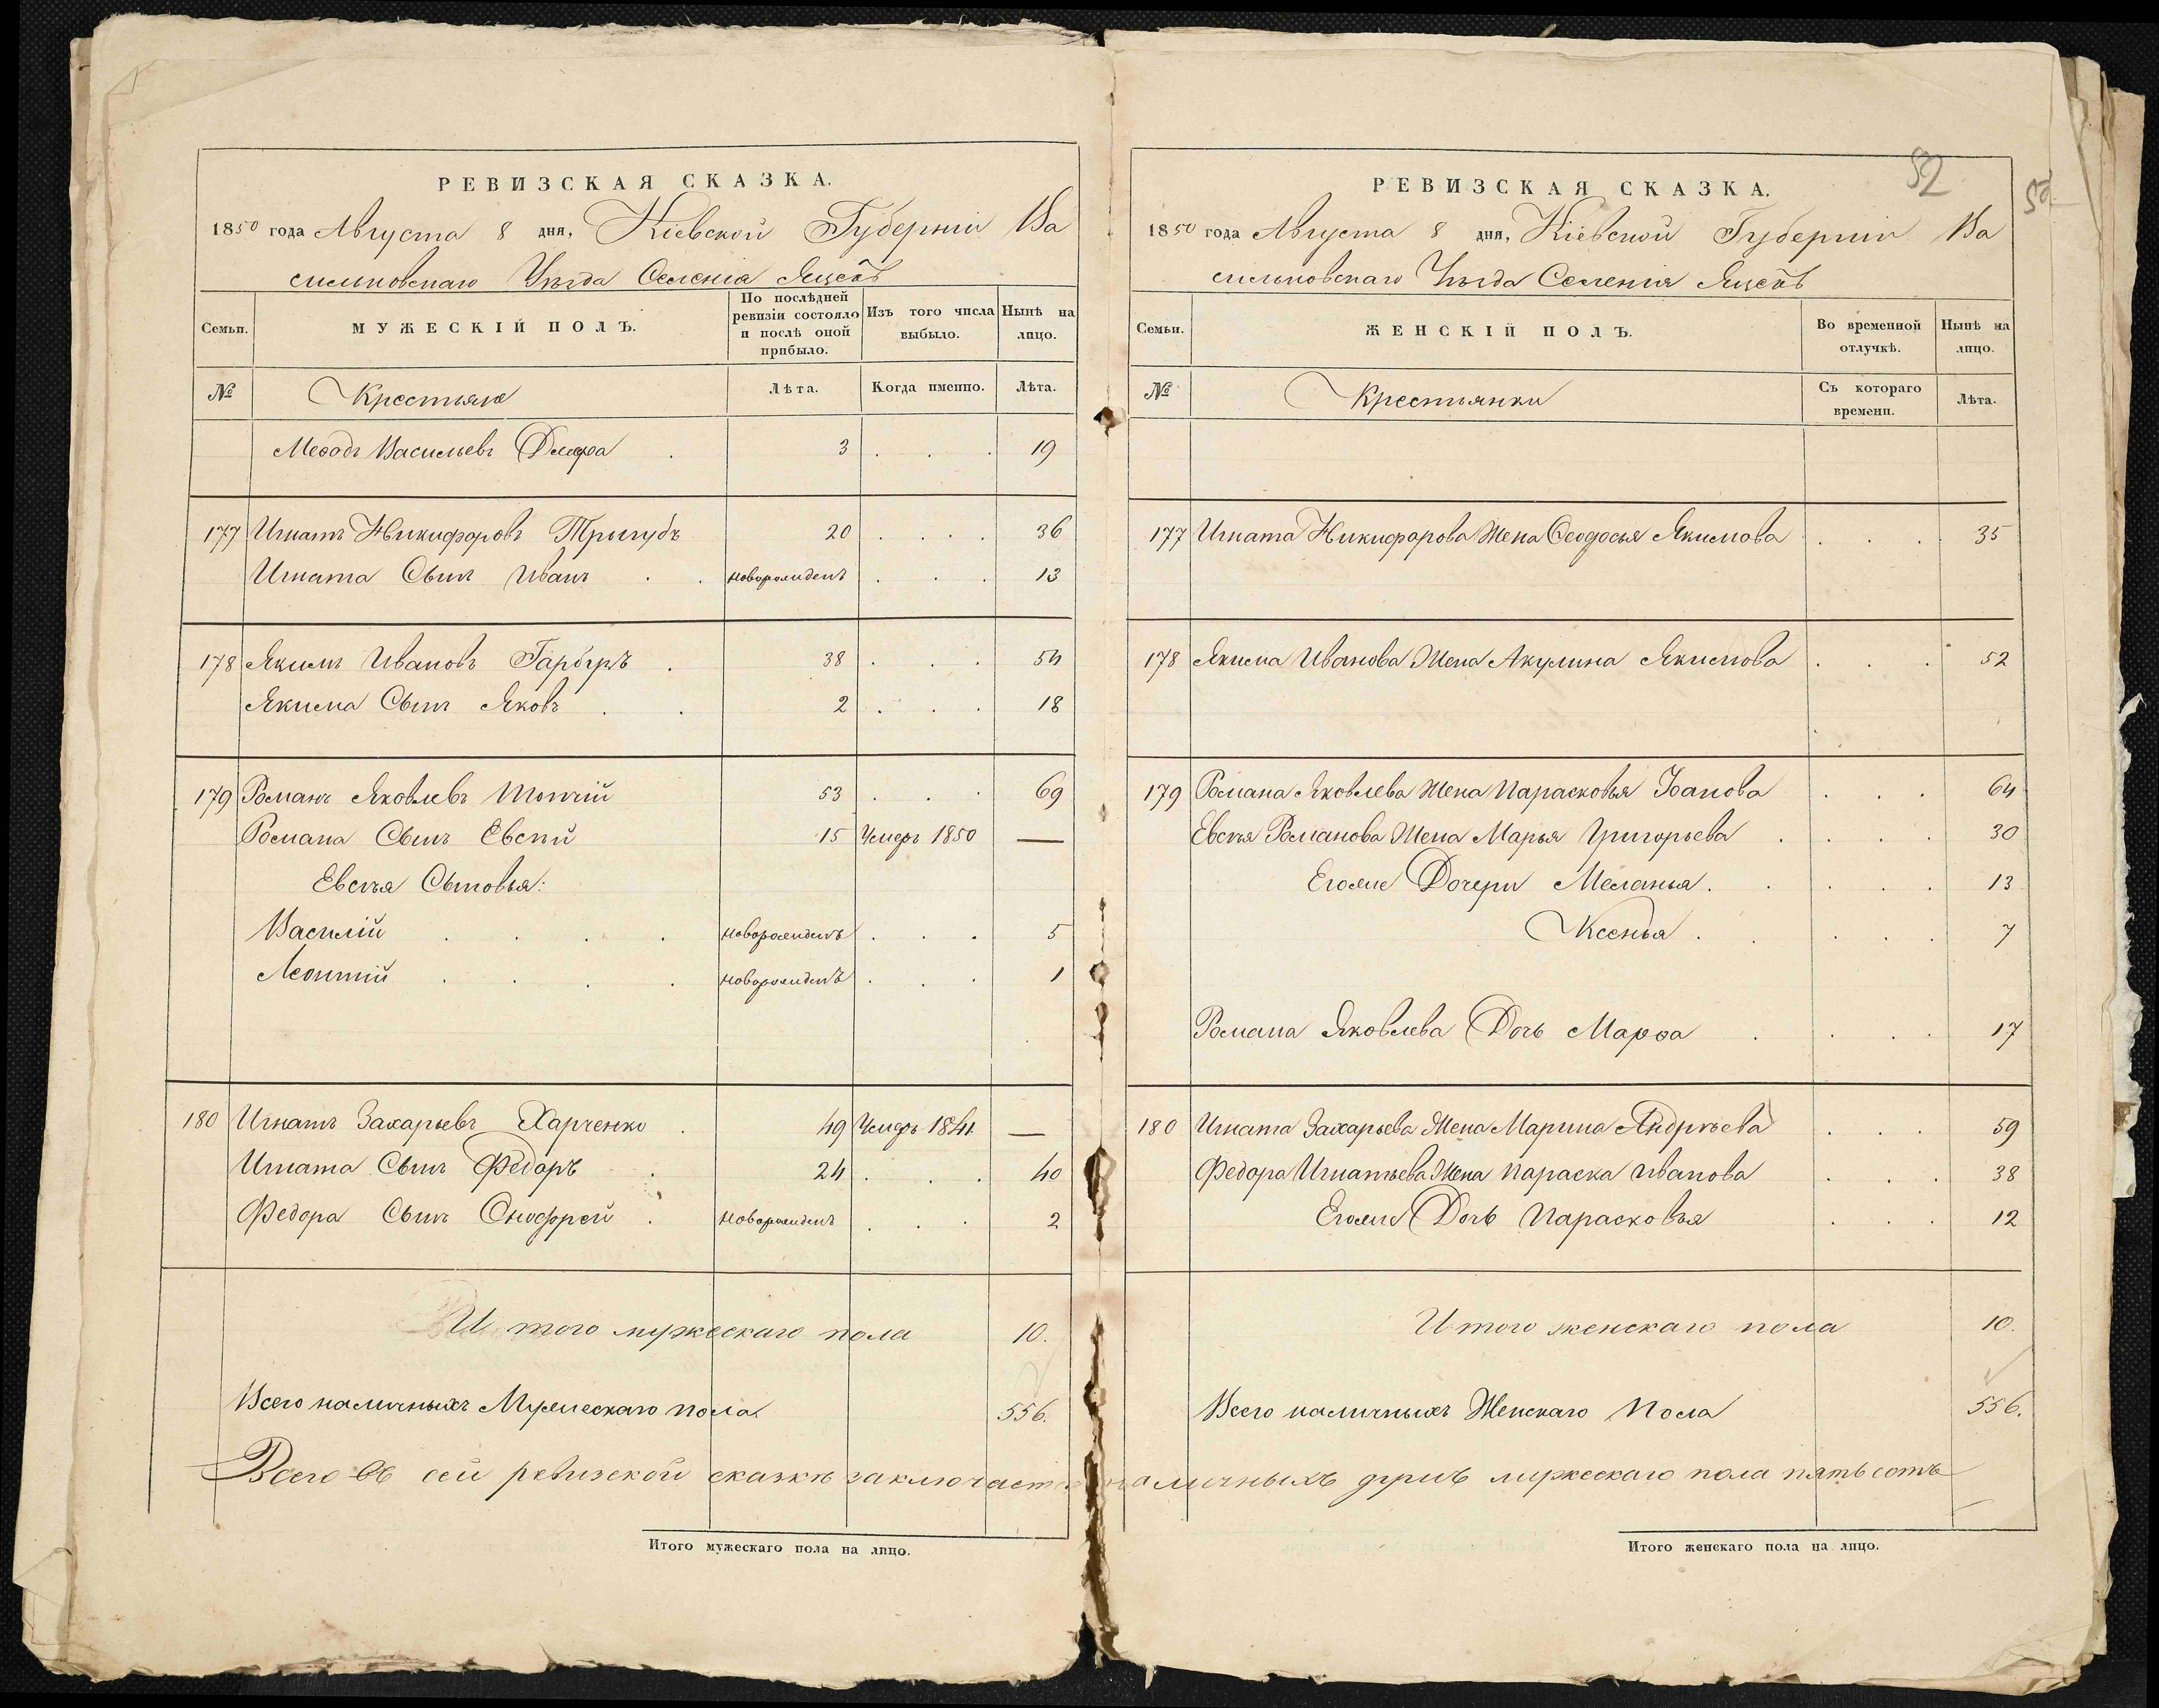 РЕВИЗСКАЯ СКАЗКА.
1850 года Августа 8 дня, Кіевской Губерніи Ва
сильковскаго Уѣзда Селенія
Семьи.
МУЖЕСКІЙ ПОЛЪ.
По послѣдней ревизіи состояло и послѣ оной прибыло.
Изъ того числа выбыло.
Нынѣ на лицо.
№
Крестьяне
Лѣта.
Когда именно.
Лѣта.
Меѳодъ Васильевъ 3 19
177 Игнатъ Никифоровъ Трыгубъ 20 36
Игната Сынъ Иванъ новорожденъ 13
178 Якимъ Ивановъ 38 54
Якима Сынъ Яковъ 2 18
179 Романъ Яковлевъ 53 69
Романа Сынъ Евсѣй 15 Умеръ 1850 —
Евсѣя Сыновья:
Василій новорожденъ 5
Леонтій новорожденъ 1
180 Игнатъ Захарьевъ Харченко 49 Умеръ 1841 —
Игната Сынъ Федоръ 24 40
Федора Сынъ Онофрей новорожденъ 2
Итого мужескаго пола 10.
Всего наличныхъ Мужескаго пола 556.
РЕВИЗСКАЯ СКАЗКА.
52
1850 года Августа 8 дня, Кіевской Губерніи Ва
сильковскаго Уѣзда Селенія
Семьи.
ЖЕНСКІЙ ПОЛЪ.
Во временной отлучкѣ.
Нынѣ на лицо.
№
Крестьянки
Съ котораго времени.
Лѣта.
177 Игната Никифорова Жена Ѳеодосья Якимова 35
178 Якима Иванова Жена Акулина Якимова 52
179 Романа Яковлева Жена Парасковья Іванова 64
Евсѣя Романова Жена Марья Григорьева 30
Егоже Дочери Меланья 13
Ксенья 7
Романа Яковлева Дочь Марѳа 17
180 Игната Захарьева Жена Марина Андрѣева 59
Федора Игнатьева Жена Параска Иванова 38
Егоже Дочь Парасковья 12
Итого женскаго пола 10.
Всего наличныхъ Женскаго Пола 556.
Всего въ сей ревизской сказкѣ заключается наличныхъ душъ мужескаго пола пять сотъ
Итого мужескаго пола на лицо.
Итого женскаго пола на лицо.